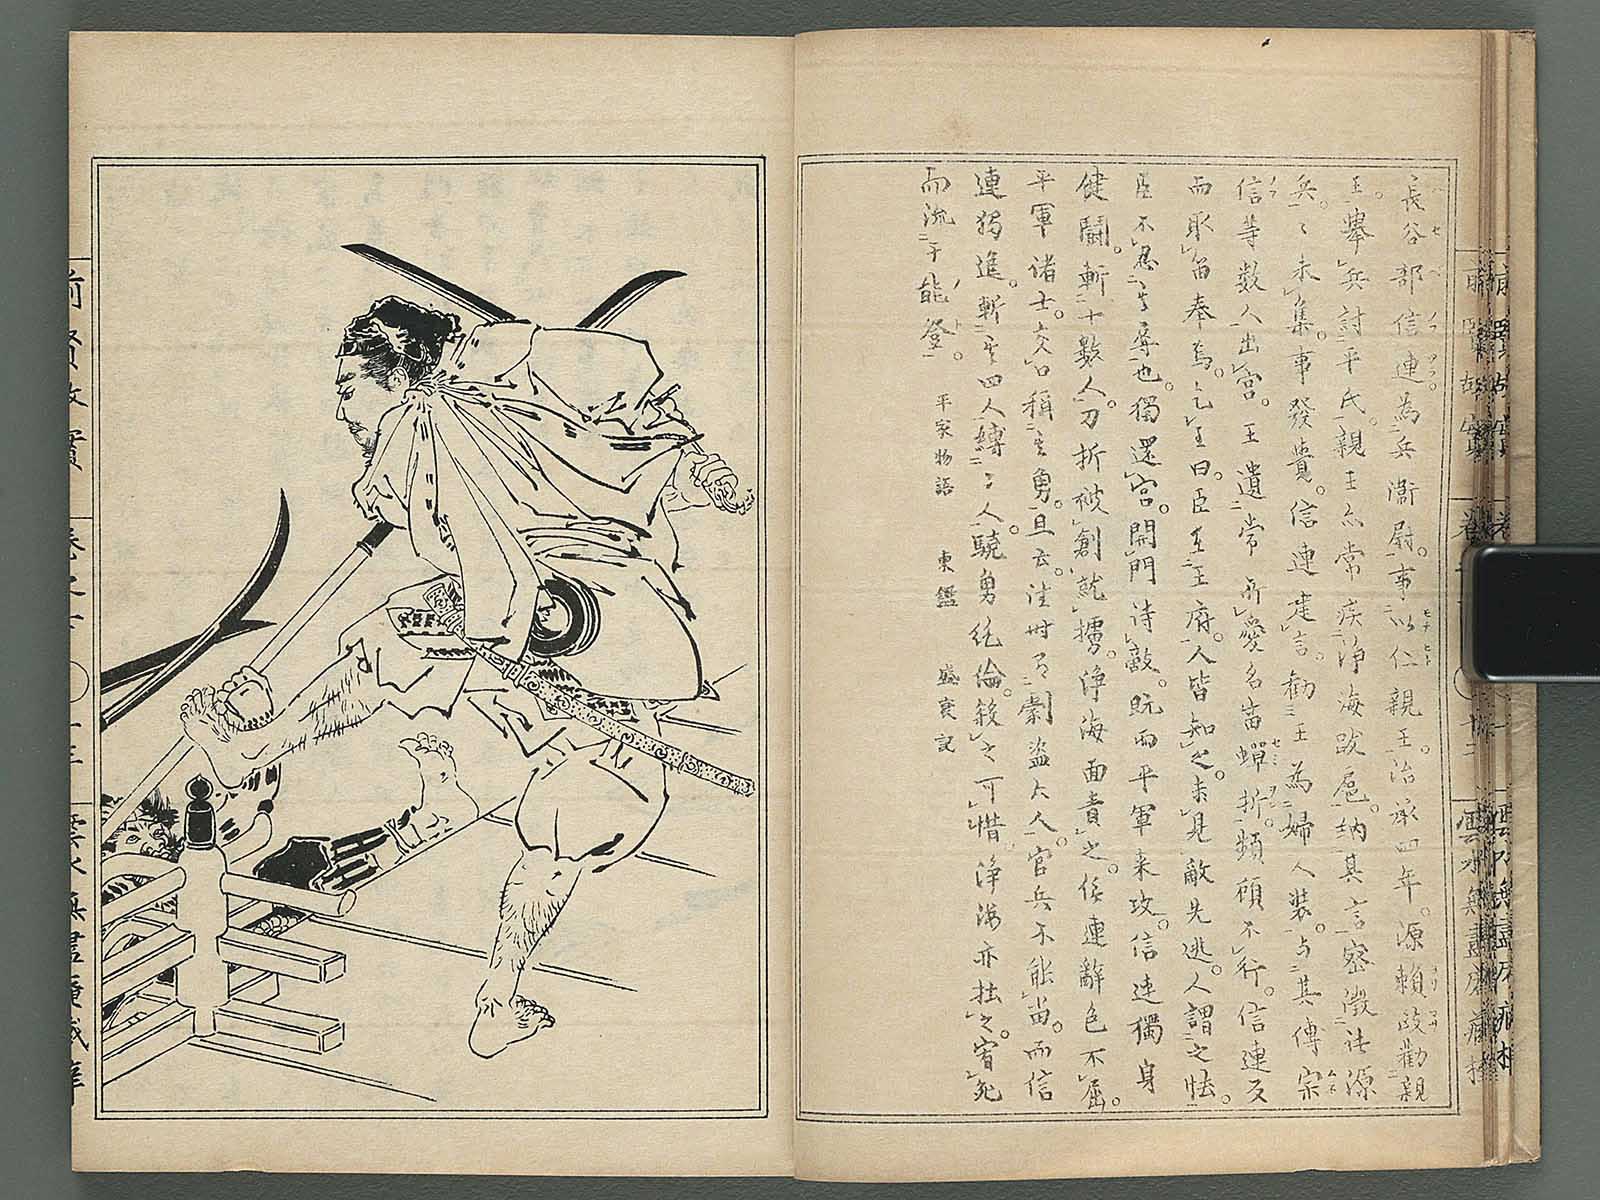 長谷部信連為兵衞尉。事以仁親王。治承四年。源賴政勸親
王。舉兵討平氏。親王亦常疾浄海跋扈。納其言密徴諸源
兵。〻未集。事發覺。信連建言。勸王為婦人装。与其傅宗
信等数人出宮。王遺常所愛名笛蟬折。頻顧不行。信連反
而取笛奉焉。乞王曰。臣在王府。人皆知之。未見敵先逃。人謂之怯。
臣不忍其辱也。獨還宮。開門待敵。既而平軍来攻。信連獨身
健鬪。斬十数人。刀折被創就擄。浄海面責之。信連辭色不屈。
平軍诸士。交口稱其勇。且云。往時有劇盗六人。官兵不能當。而信
連獨進。斬其四人縛二人。驍勇絶倫。殺之可惜。浄海亦壮之。宥死
而流于能登。 平家物語 東鑑 盛衰記
前賢故實 雲水無盡庵藏梓